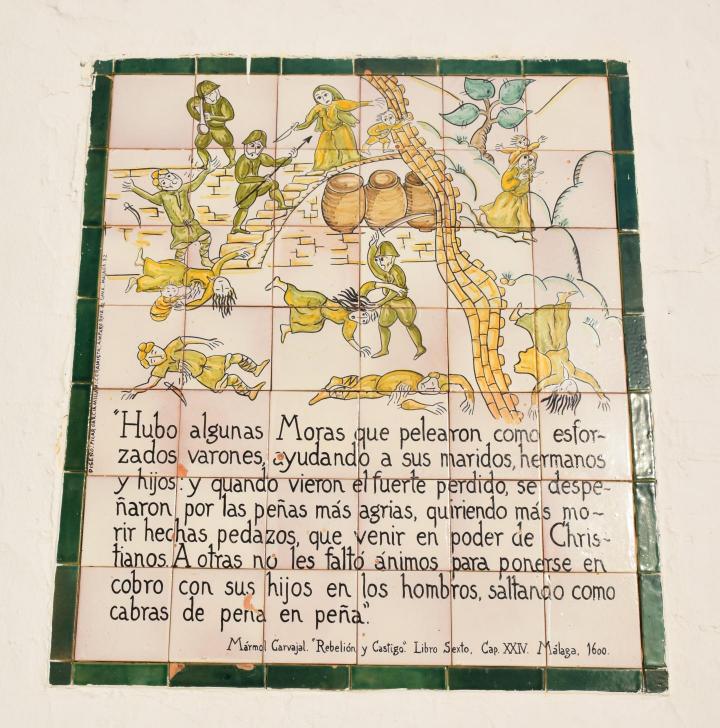 "Hubo algunas Moras que pelearon como esfor-
zados varones, ayudando a sus maridos, hermanos
y hijos: y quando vieron el fuerte perdido, se despe-
ñaron por las peñas más agrias, quiriendo más mo-
rir hechas pedazos, que venir en poder de Chris-
tianos. A otras no les faltó ánimos para ponerse en
cobro con sus hijos en los hombros, saltando como
cabras de peña en peña".
Mármol Carvajal. "Rebelión y Castigo". Libro Sexto, Cap. XXIV. Málaga, 1600.
DISEÑO: PILAR GARCIA